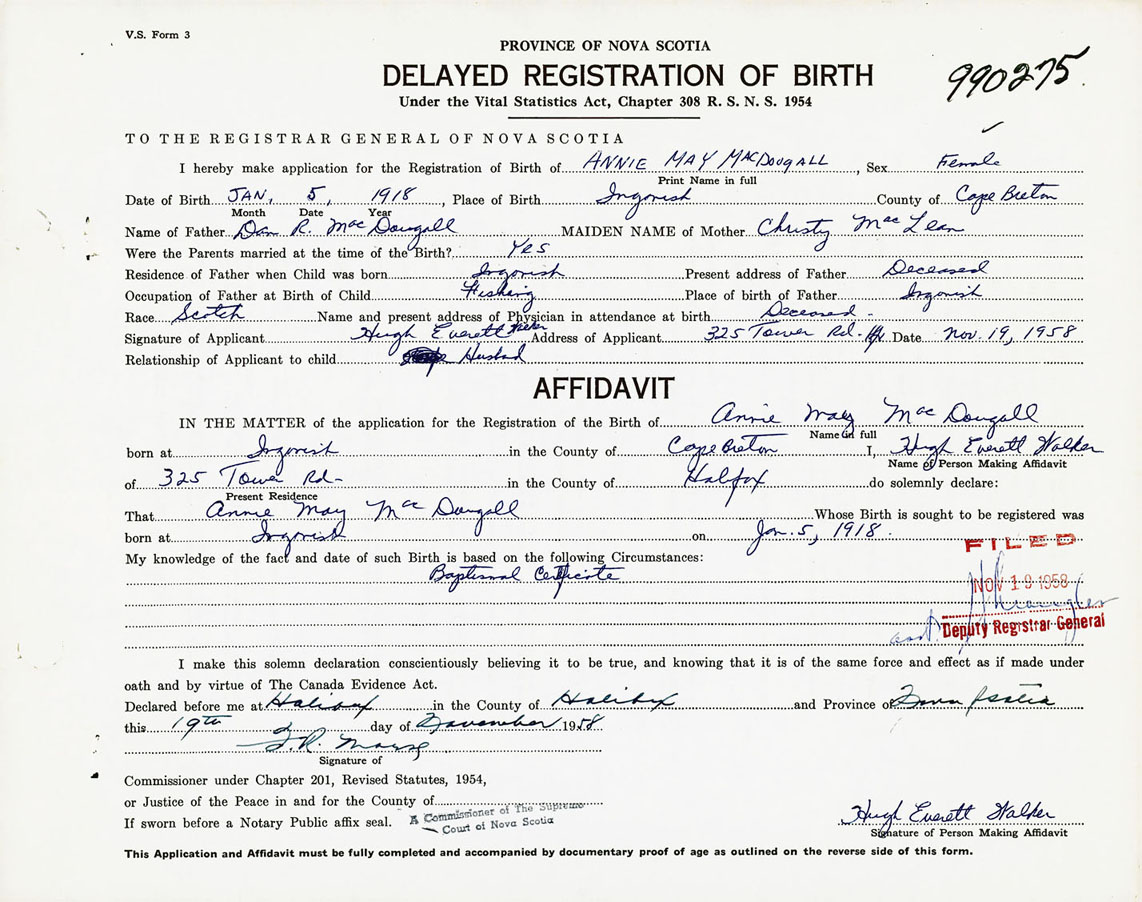 V.S. Form 3
PROVINCE OF NOVA SCOTIA
DELAYED REGISTRATION OF BIRTH
990275
Under the Vital Statistics Act, Chapter 308 R. S. N. S. 1954
TO THE REGISTRAR GENERAL OF NOVA SCOTIA
I hereby make application for the Registration of Birth of ANNIE MAY MACDOUGALL, Sex Female
Print Name in full
Date of Birth JAN, 5, 1918, Place of Birth Ingonish County of Cape Breton
Month Date Year
Name of Father Dan R. MacDougall MAIDEN NAME of Mother Christy MacLean
Were the Parents married at the time of the Birth? Yes
Residence of Father when Child was born Ingonish Present address of Father Deceased
Occupation of Father at Birth of Child Fishing Place of birth of Father Ingonish
Race Scotch Name and present address of Physician in attendance at birth Deceased -
Signature of Applicant Hugh Everett Walker Address of Applicant 325 Tower Rd. Hfx Date Nov. 19, 1958
Relationship of Applicant to child Husbad
AFFIDAVIT
IN THE MATTER of the application for the Registration of the Birth of Annie May MacDougall
Name in full
born at Ingonish in the County of Cape Breton I, Hugh Everett Walker
Name of Person Making Affidavit
of 325 Tower Rd- in the County of Halifax do solemnly declare:
Present Residence
That Annie May MacDougall Whose Birth is sought to be registered was
born at Ingonish on Jan. 5, 1918.
My knowledge of the fact and date of such Birth is based on the following Circumstances:
Baptismal Certificate
FILED
NOV 19 1958
Deputy Registrar General
I make this solemn declaration conscientiously believing it to be true, and knowing that it is of the same force and effect as if made under
oath and by virtue of The Canada Evidence Act.
Declared before me at Halifax in the County of Halifax and Province of Nova Scotia
this 19th day of November 1958
Signature of
Commissioner under Chapter 201, Revised Statutes, 1954,
or Justice of the Peace in and for the County of
If sworn before a Notary Public affix seal. A Commissioner of The Supreme
Court of Nova Scotia
Hugh Everett Walker
Signature of Person Making Affidavit
This Application and Affidavit must be fully completed and accompanied by documentary proof of age as outlined on the reverse side of this form.